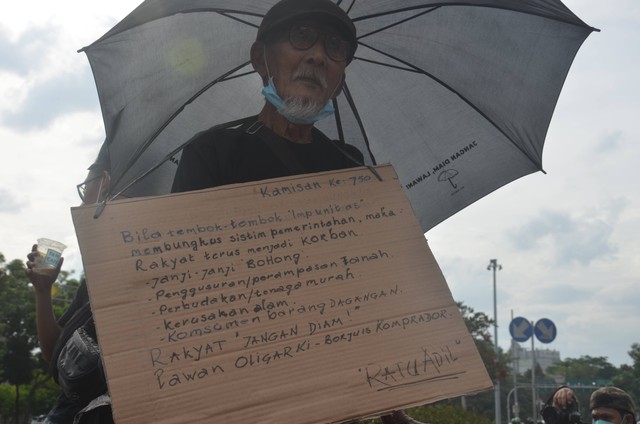 JANGAN DIAM, LAWAN!
Kamisan Ke: 750
Bila tembok-tembok "Impunitas"
membungkus sistim pemerintahan, maka
Rakyat terus menjadi KORBAN
- Janji-Janji BOHONG
- Penggusuran/perampasan Tanah.
- Perbudakan/tenaga murah.
- Kerusakan alam.
- Konsumen barang DAGANGAN.
RAKYAT "JANGAN DIAM!"
Lawan OLIGARKI-BORJUIS KOMPRADOR.
"RATU ADIL"